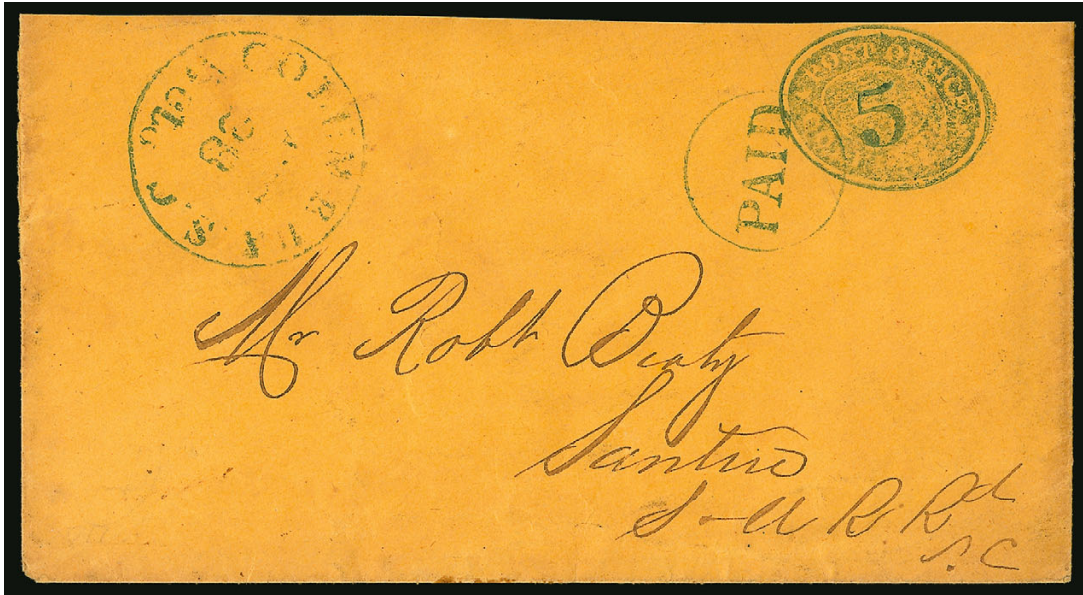 COLUMBIA S.C.
PAID
POST OFFICE
5
Mr Robt Beaty
Santuc
S-U R. Rd
S.C